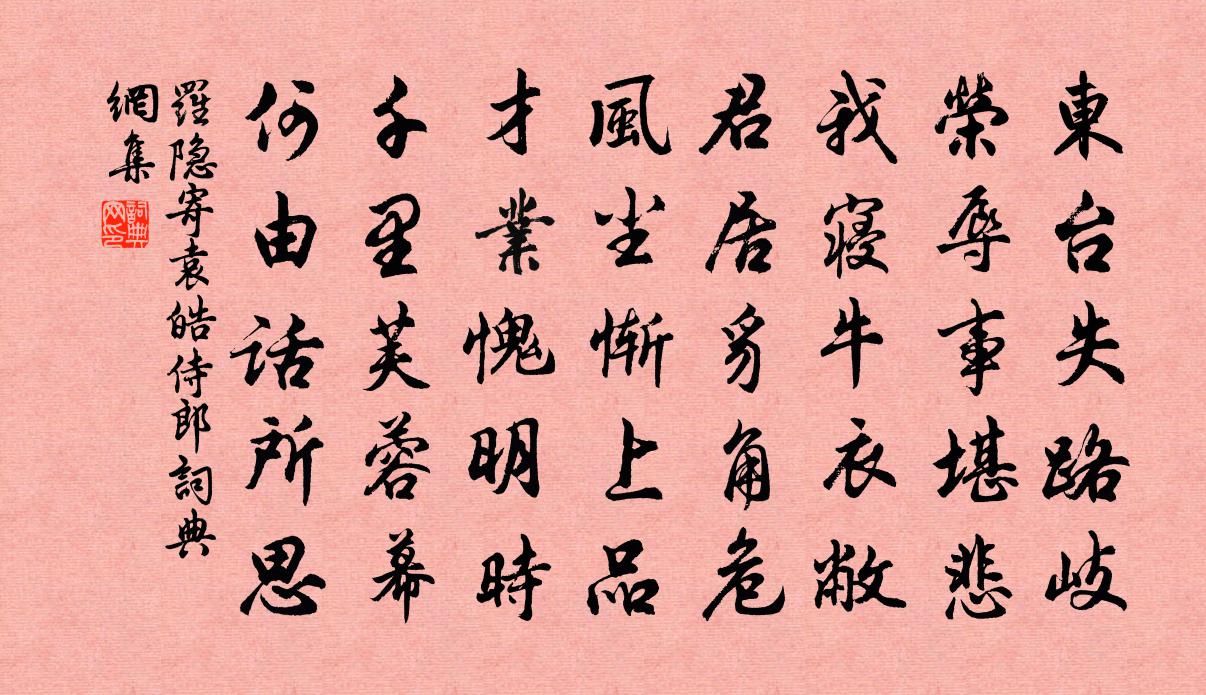 東台失路岐
榮辱事堪悲
我寝牛衣敝
君居豸角危
風尘惭上品
才業愧明時
千里芙蓉幕
何由話所思
羅隐寄袁皓侍郎詞典
網集
詞典網印